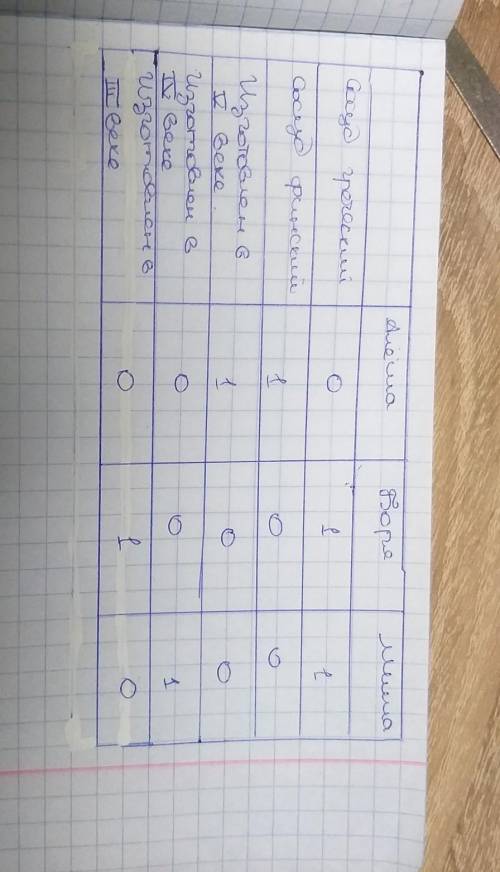 Алёша Боря Миша
Сосуд греческий 0 1 1
Сосуд финский 1 0 0
Изготовлен в
V веке. 1 0 0
Изготовлен в
IV веке 0 0 1
Изготовлен в
III веке 0 1 0